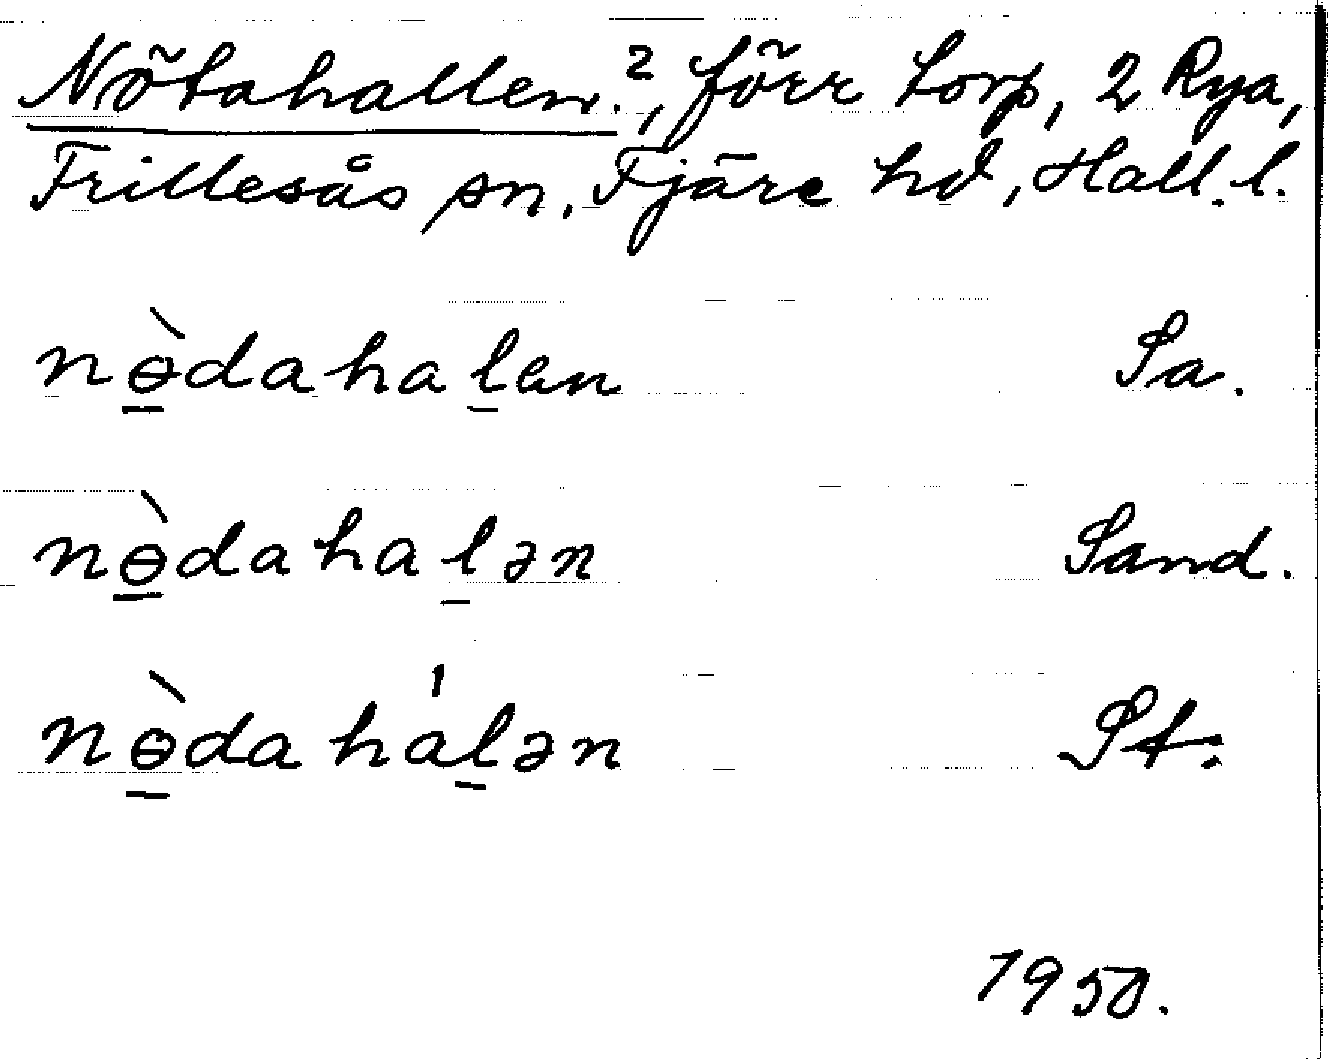 Nötahallen.², förr torp, 2 Rya,
Frillesås sn, Fjäre hd, Hall. l.
nө̠̀dahal̠an Sa.
nө̠̀dahal̠ən Sand.
nө̠̀dahál̠ən St.
1950.